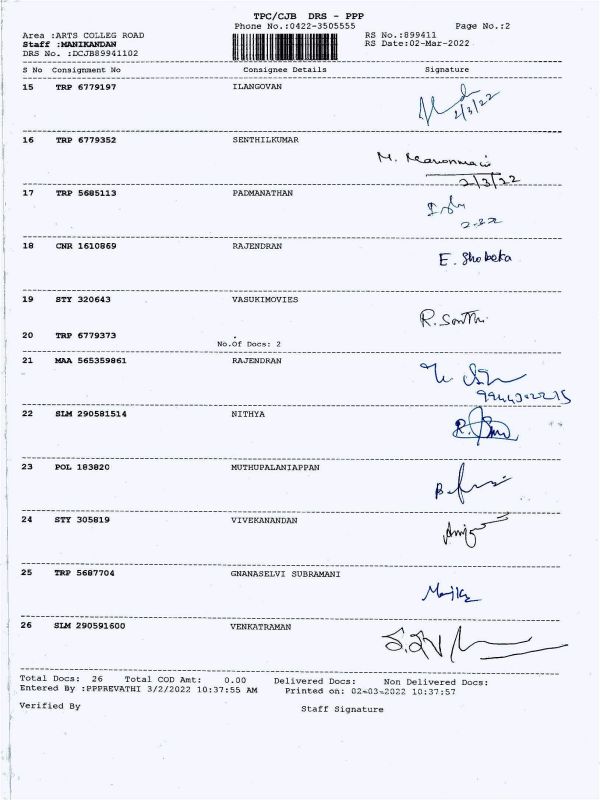 TPC/CJB DRS - PPP
Phone No.:0422-3505555 Page No.:2
Area :ARTS COLLEG ROAD RS No.:899411
Staff :MANIKANDAN RS Date:02-Mar-2022
DRS No. :DCJB89941102
S No Consignment No Consignee Details Signature
15 TRP 6779197 ILANGOVAN
2/3/22
16 TRP 6779352 SENTHILKUMAR
M.
2/3/22
17 TRP 5685113 PADMANATHAN
18 CNR 1610869 RAJENDRAN
E. Shobeka
19 STY 320643 VASUKIMOVIES
R. Santhi
20 TRP 6779373
No.Of Docs: 2
21 MAA 565359861 RAJENDRAN
22 SLM 290581514 NITHYA
23 POL 183820 MUTHUPALANIAPPAN
24 STY 305819 VIVEKANANDAN
25 TRP 5687704 GNANASELVI SUBRAMANI
26 SLM 290591600 VENKATRAMAN
Total Docs: 26 Total COD Amt: 0.00 Delivered Docs: Non Delivered Docs:
Entered By :PPPREVATHI 3/2/2022 10:37:55 AM Printed on: 02-03-2022 10:37:57
Verified By Staff Signature